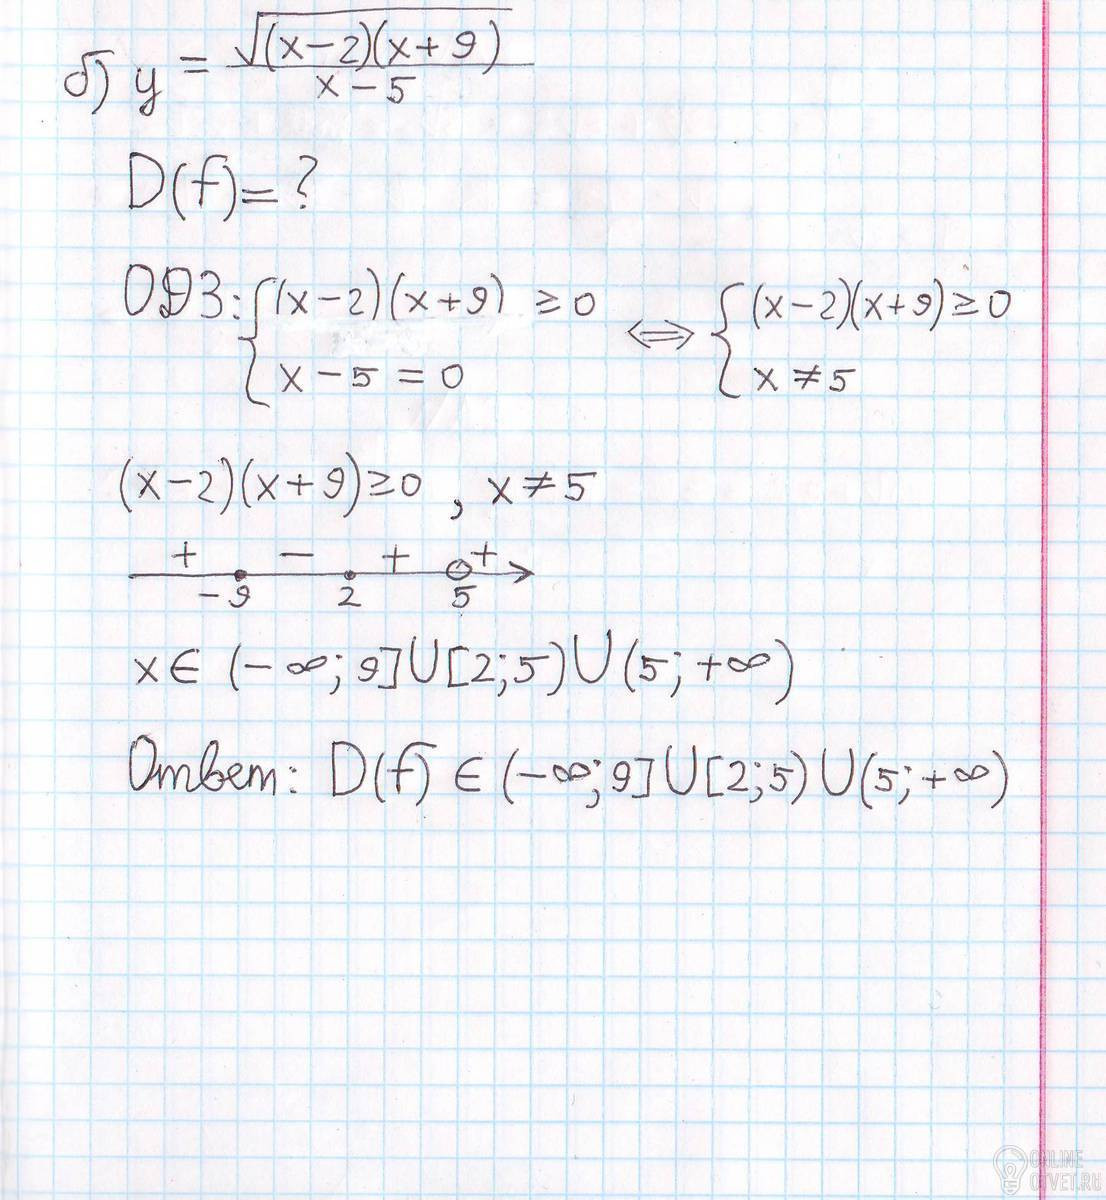 б) y = √(x-2)(x+9) / x-5
D(f)=?
ОДЗ: { (x-2)(x+9) ≥ 0 ⟺ { (x-2)(x+9) ≥ 0
x-5 = 0 x ≠ 5
(x-2)(x+9) ≥ 0 , x ≠ 5
+ − + +
-9 2 5
x ∈ (-∞; 9] ∪ [2; 5) ∪ (5; +∞)
Ответ: D(f) ∈ (-∞; 9] ∪ [2; 5) ∪ (5; +∞)
ONLINE
OTVET.RU